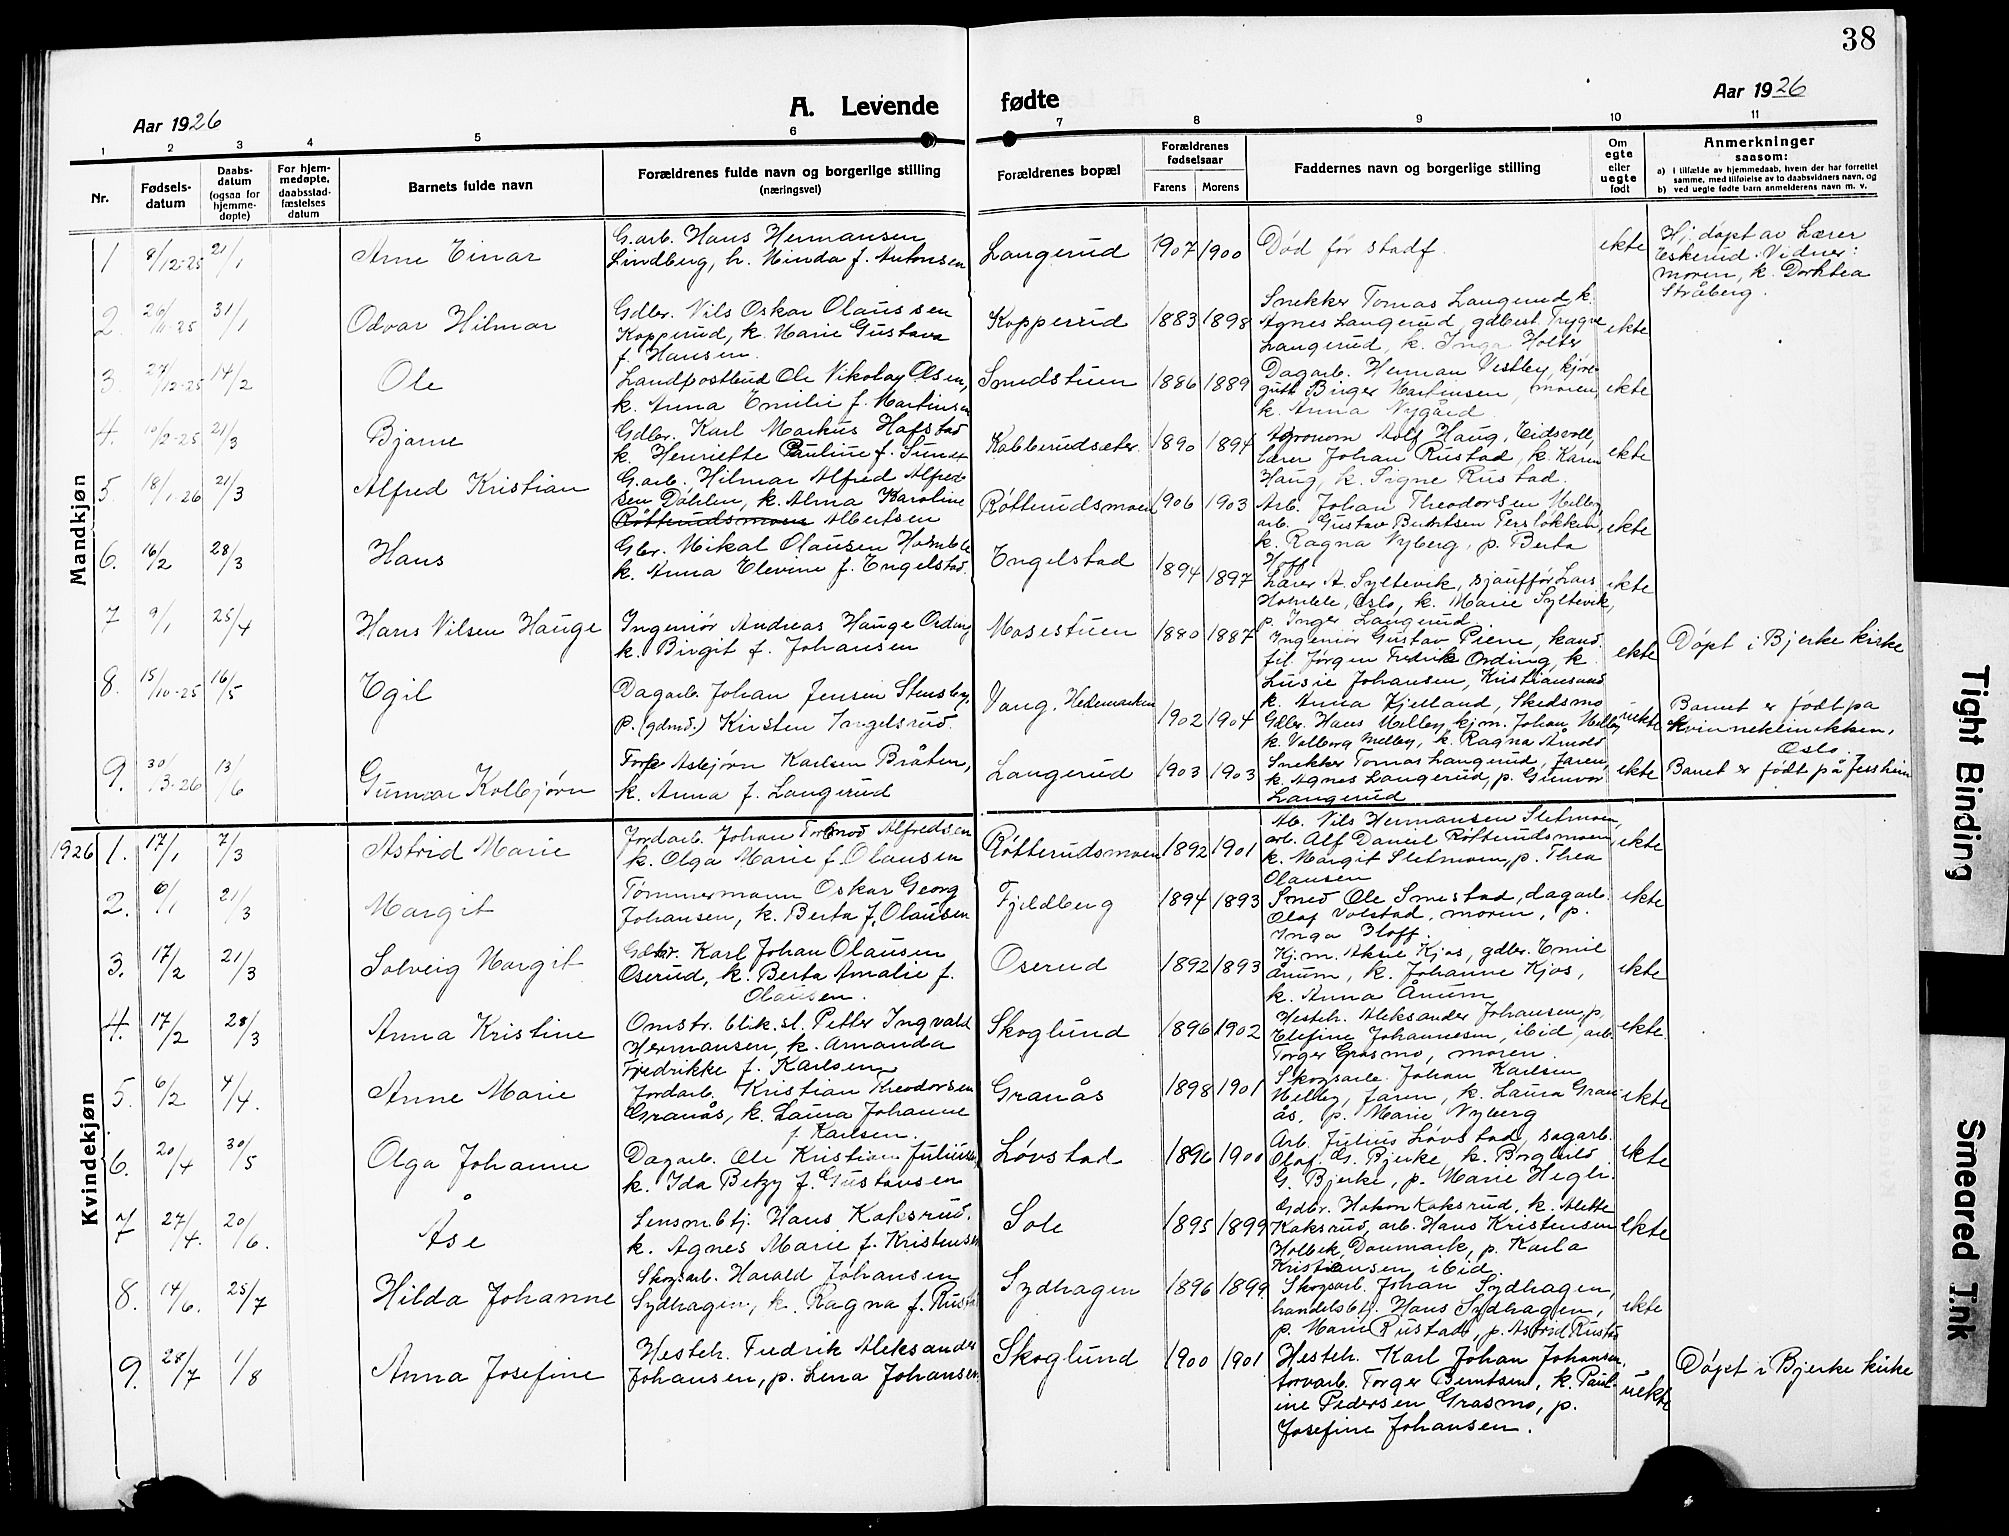 38
Aar 1926
A. Levende fødte
Aar 1926
1 2 3 4 5 6 7 8 9 10 11
Nr.
Fødsels-
datum
Daabs-
datum
(ogsaa for
hjemme-
døpte)
For hjem-
medøpte,
daabsstad-
fæstelses
datum
Barnets fulde navn
Forældrenes fulde navn og borgerlige stilling
(næringsvei)
Forældrenes bopæl
Forældrenes
fødselsaar
Farens Morens
Faddernes navn og borgerlige stilling
Om
egte
eller
uegte
født
Anmerkninger
saasom:
a) i tilfælde av hjemmedaab, hvem der har forrettet
samme, med tilføielse av to daabsvidners navn, og
b) ved uegte fødte barn anmelderens navn m. v.
Mandkjøn
1 8/12-25 21/1 Arne Einar
G.arb. Hans Hermansen
Lindberg, h. Minda f. Antonsen
Langerud 1907 1900 Død før stadf. ekte
Hj. døpt av Lærer
Eskerud. Vidner:
moren, k. Dorthea
Stråberg.
2. 26/11-25 31/1 Odvar Hilmar
Gdbr. Nils Oskar Olaussen
Kopperud, k. Marie Gustava
f. Hansen.
Kopperud 1883 1898
Snekker Tomas Langerud, k.
Agnes Langerud, gdbest. Trygve
Langerud, k. Inga Holter
ekte
3. 27/12-25 14/2 Ole
Landpostbud Ole Nikolay Olsen,
k. Anna Emilie f. Martinsen
Smedstuen 1886 1889
Dagarb. Herman Vestby, kjøre-
gutt Birger Martinsen, moren,
k. Anna Nygård
ekte
4. 10/2-25 21/3 Bjarne
Gdbr. Karl Markus Hafstad
k. Henriette Pauline f.
Kabberudseter 1890 1894
Agronom Adolf Haug, Eidsvoll,
lærer Johan Rustad, k. Karen
Haug, k. Signe Rustad.
ekte
5. 18/1-26 21/3 Alfred Kristian
G.arb. Hilmar Alfred Alfred-
sen Dahlen, k. Alma Karoline
Røtterudsmoen Albertsen
Røtterudsmoen 1906 1903
Arb. Johan Theodorsen Melby,
arb. Gustav Berntsen Persløkken,
k. Ragna Nyberg, p. Berta
Hoff
ekte
6. 16/2 28/3 Hans
Gbr. Mikal Olausen Homble
k. Anna Elevine f. Engelstad.
Engelstad 1894 1897
Lærer A. Syltevik, sjauffør Lars
Homble, Oslo, k. Marie Syltevik,
p. Inger Langerud.
ekte
7 9/1 25/4 Hans Nilsen Hauge
Ingeniør Andreas Hauge Ording
k. Birgit f. Johansen
Mosestuen 1880 1887
Ingeniør Gustav Piene, kand.
fil. Jørgen Fredrik Ording, k.
Lusie Johansen, Kristiansund
k. Anna Kjelland, Skedsmo
ekte Døpt i Bjerke kirke
8. 15/10-25 16/5 Egil
Dagarb. Johan Jensen Stensby,
p. (gdmd.) Kirsten Ingelsrud.
Vang. Hedemarken 1902 1904
Gdbr. Hans Melby, kjm. Johan Melby
k. Valborg Melby, k. Ragna Årnold
uekte
Barnet er født på
kvinneklinikken,
Oslo.
9. 30/3-26 13/6 Gunnar Kolbjørn
Forp. Asbjørn Karlsen Bråten,
k. Anna f. Langerud
Langerud 1903 1903
Snekker Tomas Langerud, faren,
k. Agnes Langerud, p. Gunvor
Langerud
ekte Barnet er født på Jessheim
Kvindekjøn
1926 1. 17/1 7/3 Astrid Marie
Jordarb. Johan Alfredsen
k. Olga Marie f. Olausen
Røtterudsmoen 1892 1901
Ab. Nils Hermansen Sletmoen,
arb. Alf Daniel Røtterudsmoen
k. Margit Sletmoen, p. Thea
Olausen
ekte
2. 6/1 21/3 Margit
Tømmermann Oskar Georg
Johansen, k. Berta f. Olausen
Fjeldberg 1894 1893
Smed Ole Smestad, dagarb.
Olaf Volstad, moren, p.
Inga Hoff.
ekte
3. 17/2 21/3 Solveig Margit
Gdbr. Karl Johan Olausen
Oserud, k. Berta Amalie f.
Olausen.
Oserud 1892 1893
Kjm. Aksel Kjos, gdbr. Emil
Ånum, k. Johanne Kjos,
k. Anna Ånum
ekte
4. 17/2 28/3 Anna Kristine
Omstr. blik.sl. Petter Ingvald
Hermansen, k. Amanda
Fredrikke f. Karlsen
Skoglund 1896 1902
Hesteh. Aleksander Johansen, p.
Elefine Johannessen, ibid, arb.
Torger Grasmo, moren.
ekte
5. 6/2 4/4. Anne Marie
Jordarb. Kristian Theodorsen
Granås, k. Laura Johanne
f. Karlsen.
Granås 1898 1901
Skogsarb. Johan Karlsen
Melby, faren, k. Laura Gran-
ås, p. Marie Nyberg
ekte
6. 20/4 30/5 Olga Johanne
Dagarb. Ole Kristian Juliussen
k. Ida Betzy f. Gustavsen
Løvstad 1896 1900
Arb. Julius Løvstad, sagarb.
Olaf G. Bjerke, k. Borghild
G. Bjerke, p. Marie Hegli.
ekte
7 27/4. 20/6. Åse
Lensm.btj. Hans Koksrud.
k. Agnes Marie f. Kristensen
Sole 1895 1899
Gdbr. Håkon Koksrud, k. Alette
Koksrud, arb. Hans Kristensen
Holbek, Danmark, p. Karla
Kristiansen, ibid.
ekte
8. 14/6. 25/7 Hilda Johanne
Skogsarb. Harald Johansen
Sydhagen, k. Ragna f. Rustad
Sydhagen 1896 1899
Skogsarb. Johan Sydhagen,
handelsbtj. Hans Sydhagen,
p. Marie Rustad, p. Astrid Rustad
ekte
9. 28/7 1/8 Anna Josefine
Hesteh. Fredrik Aleksander
Johansen, p. Lena Johansen.
Skoglund 1900 1901
Hesteh. Karl Johan Johansen,
torvarb. Torger Berntsen, k. Paul-
ine Pedersen Grasmo, p.
Josefine Johansen.
uekte Døpt i Bjerke kirke
Tight Binding
Smeared Ink